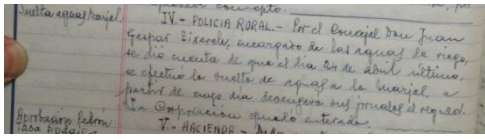 concepto.
Suelta aguas Marjal
IV.- POLICIA RURAL.- Por el Concejal Don Juan
Gaspar encargado de las aguas de riego,
se dio cuenta de que el dia 24 de abril último,
se efectuó la suelta de aguas a la Marjal, a
partir de cuyo dia devengara sus jornales el regador.
La Corporación quedó enterada.
Aprobación Padrón
V.- HACIENDA.-